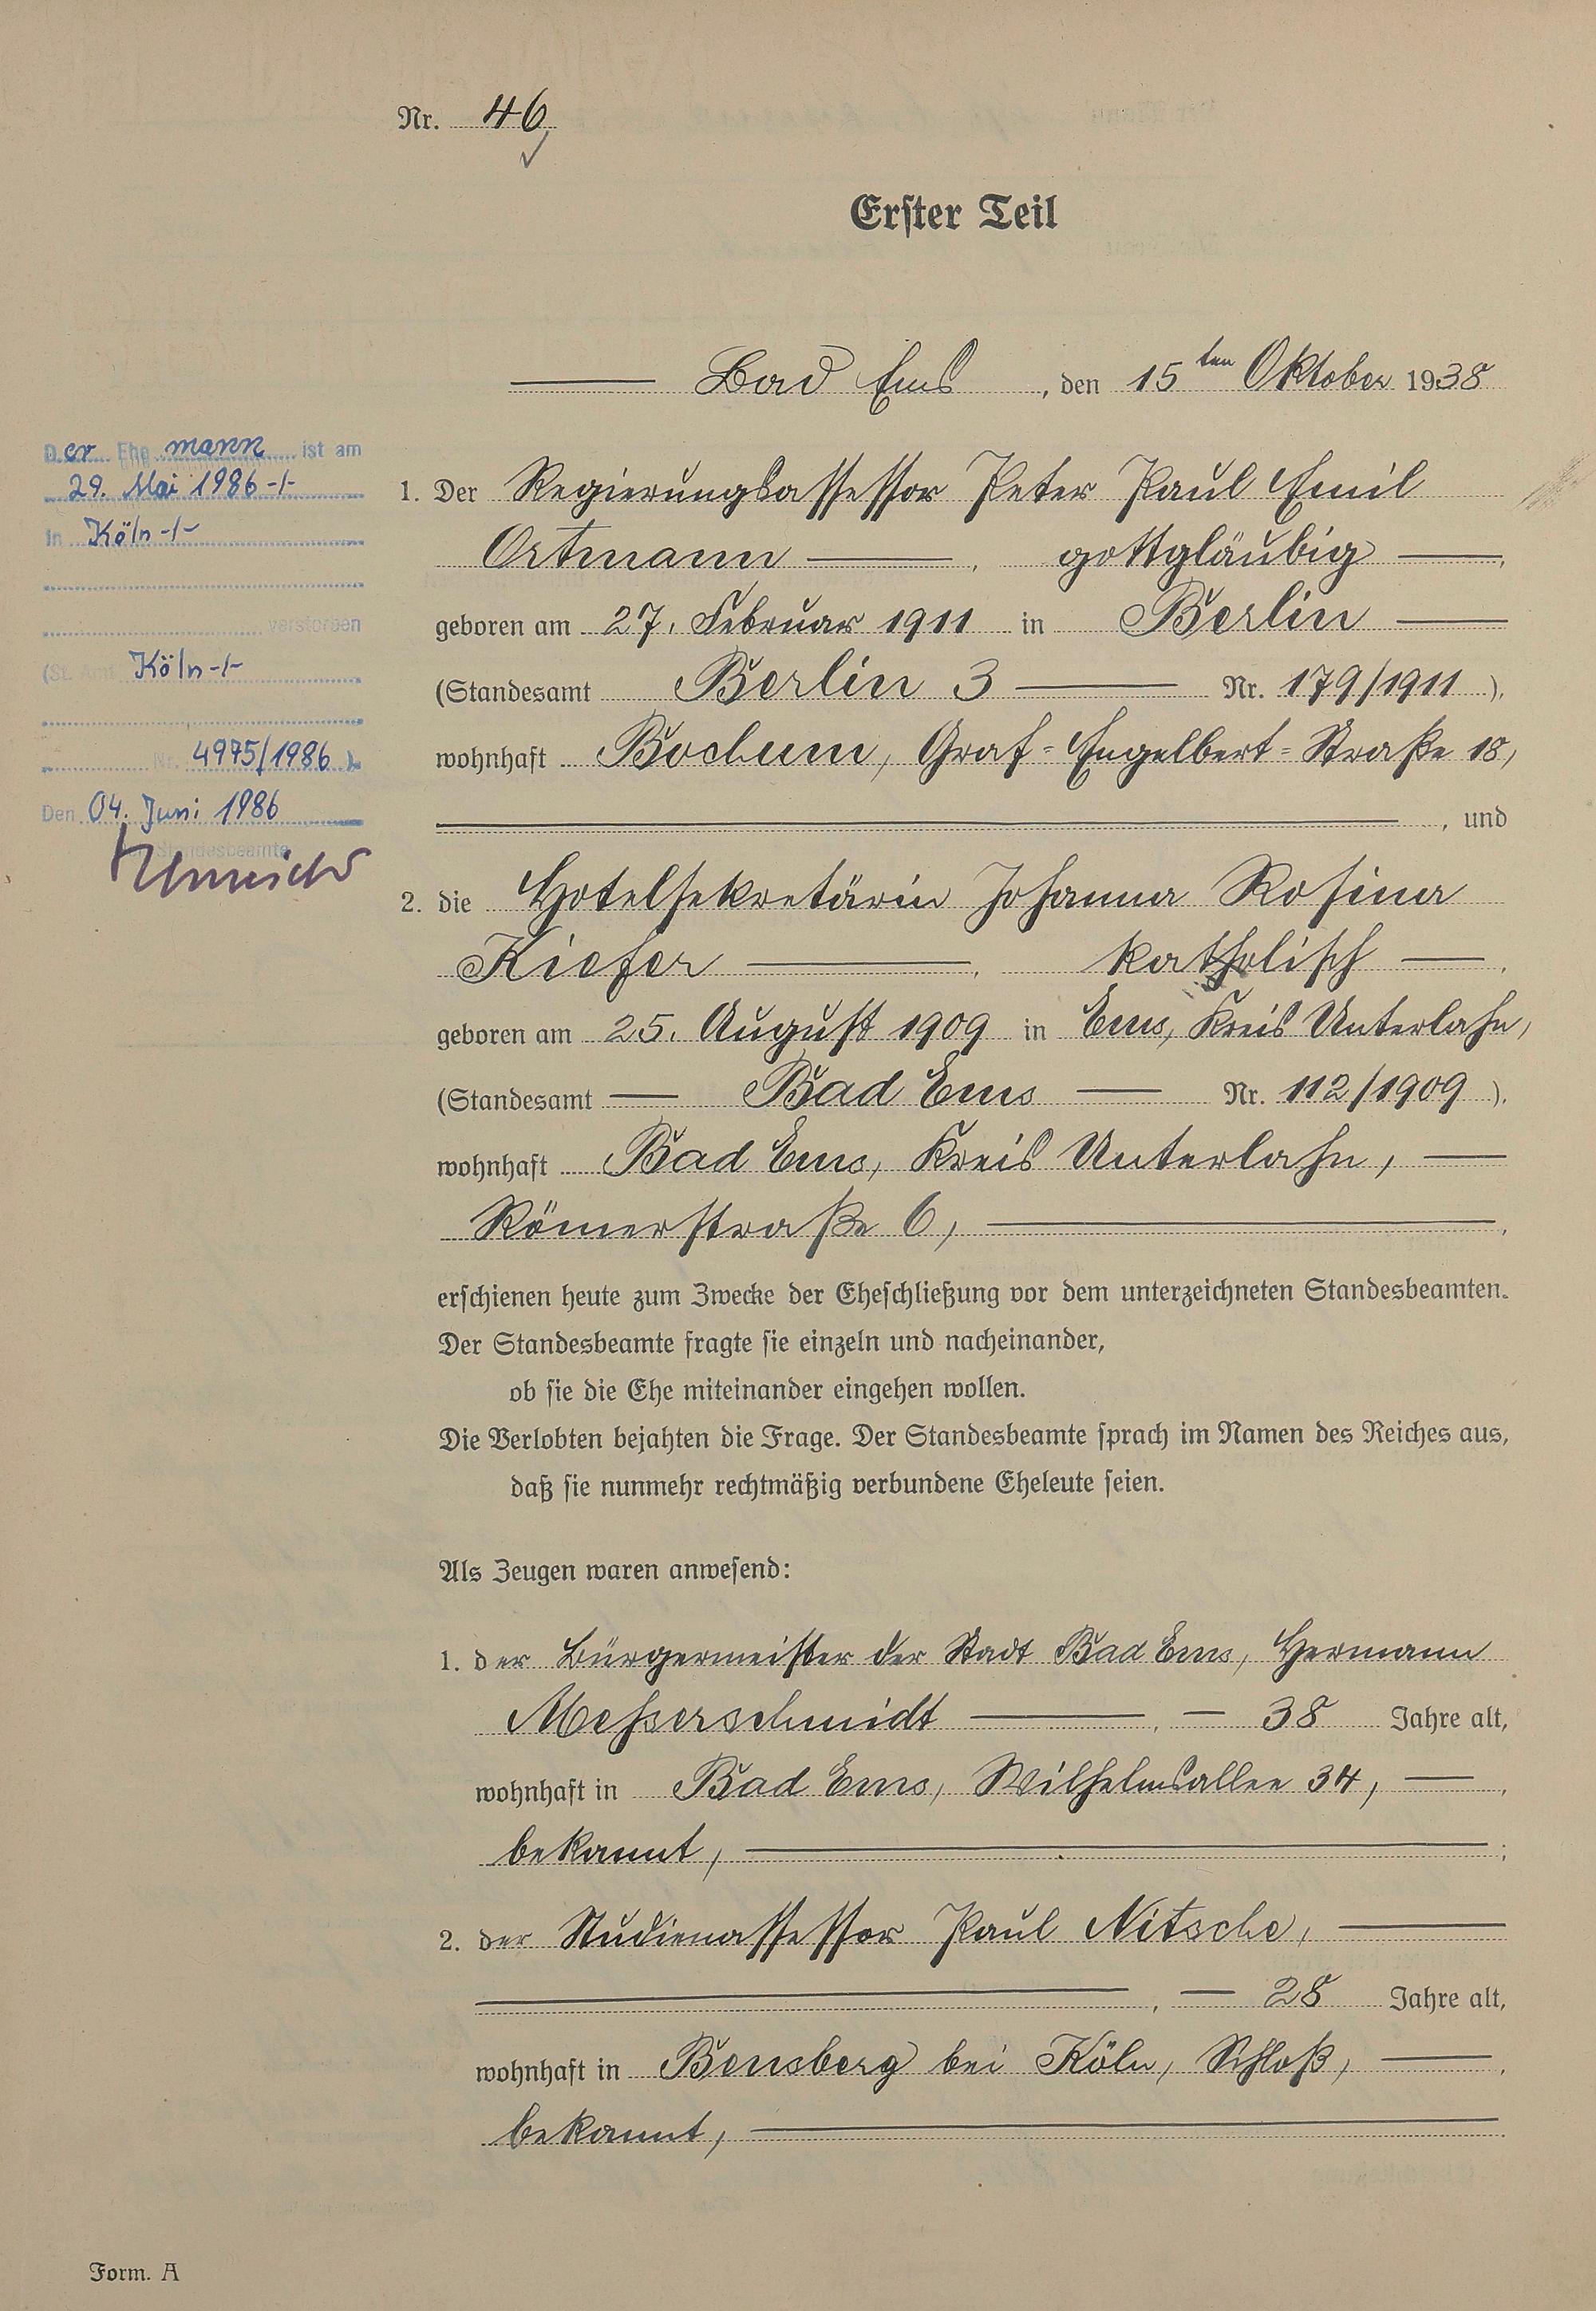 Nr. 46
Erster Teil
Bad Ems, den 15ten Oktober 1938
Der Ehemann ist am
29. Mai 1986 -/-
in Köln -/-
verstorben
(St. Amt Köln -/-
Nr. 4975/1986 ).
Den 04. Juni 1986
Standesbeamte
1. Der Regierungsassessor Peter Paul Emil
Ortmann, gottgläubig,
geboren am 27. Februar 1911 in Berlin
(Standesamt Berlin 3 Nr. 179/1911 ),
wohnhaft Bochum, Graf=Engelbert=Straße 18,
, und
2. die Hotelsekretärin Johanna Rosina
Kiefer, katholisch,
geboren am 25. August 1909 in Ems, Kreis Unterlahn,
(Standesamt Bad Ems Nr. 112/1909 ),
wohnhaft Bad Ems, Kreis Unterlahn,
Römerstraße 6,
erschienen heute zum Zwecke der Eheschließung vor dem unterzeichneten Standesbeamten.
Der Standesbeamte fragte sie einzeln und nacheinander,
ob sie die Ehe miteinander eingehen wollen.
Die Verlobten bejahten die Frage. Der Standesbeamte sprach im Namen des Reiches aus,
daß sie nunmehr rechtmäßig verbundene Eheleute seien.
Als Zeugen waren anwesend:
1. der Bürgermeister der Stadt Bad Ems, Hermann
Messerschmidt, 38 Jahre alt,
wohnhaft in Bad Ems, Wilhelmsallee 34,
bekannt, ;
2. der Studienassessor Paul Nitsche,
, 28 Jahre alt,
wohnhaft in Bensberg bei Köln, Schloß,
bekannt,
Form. A